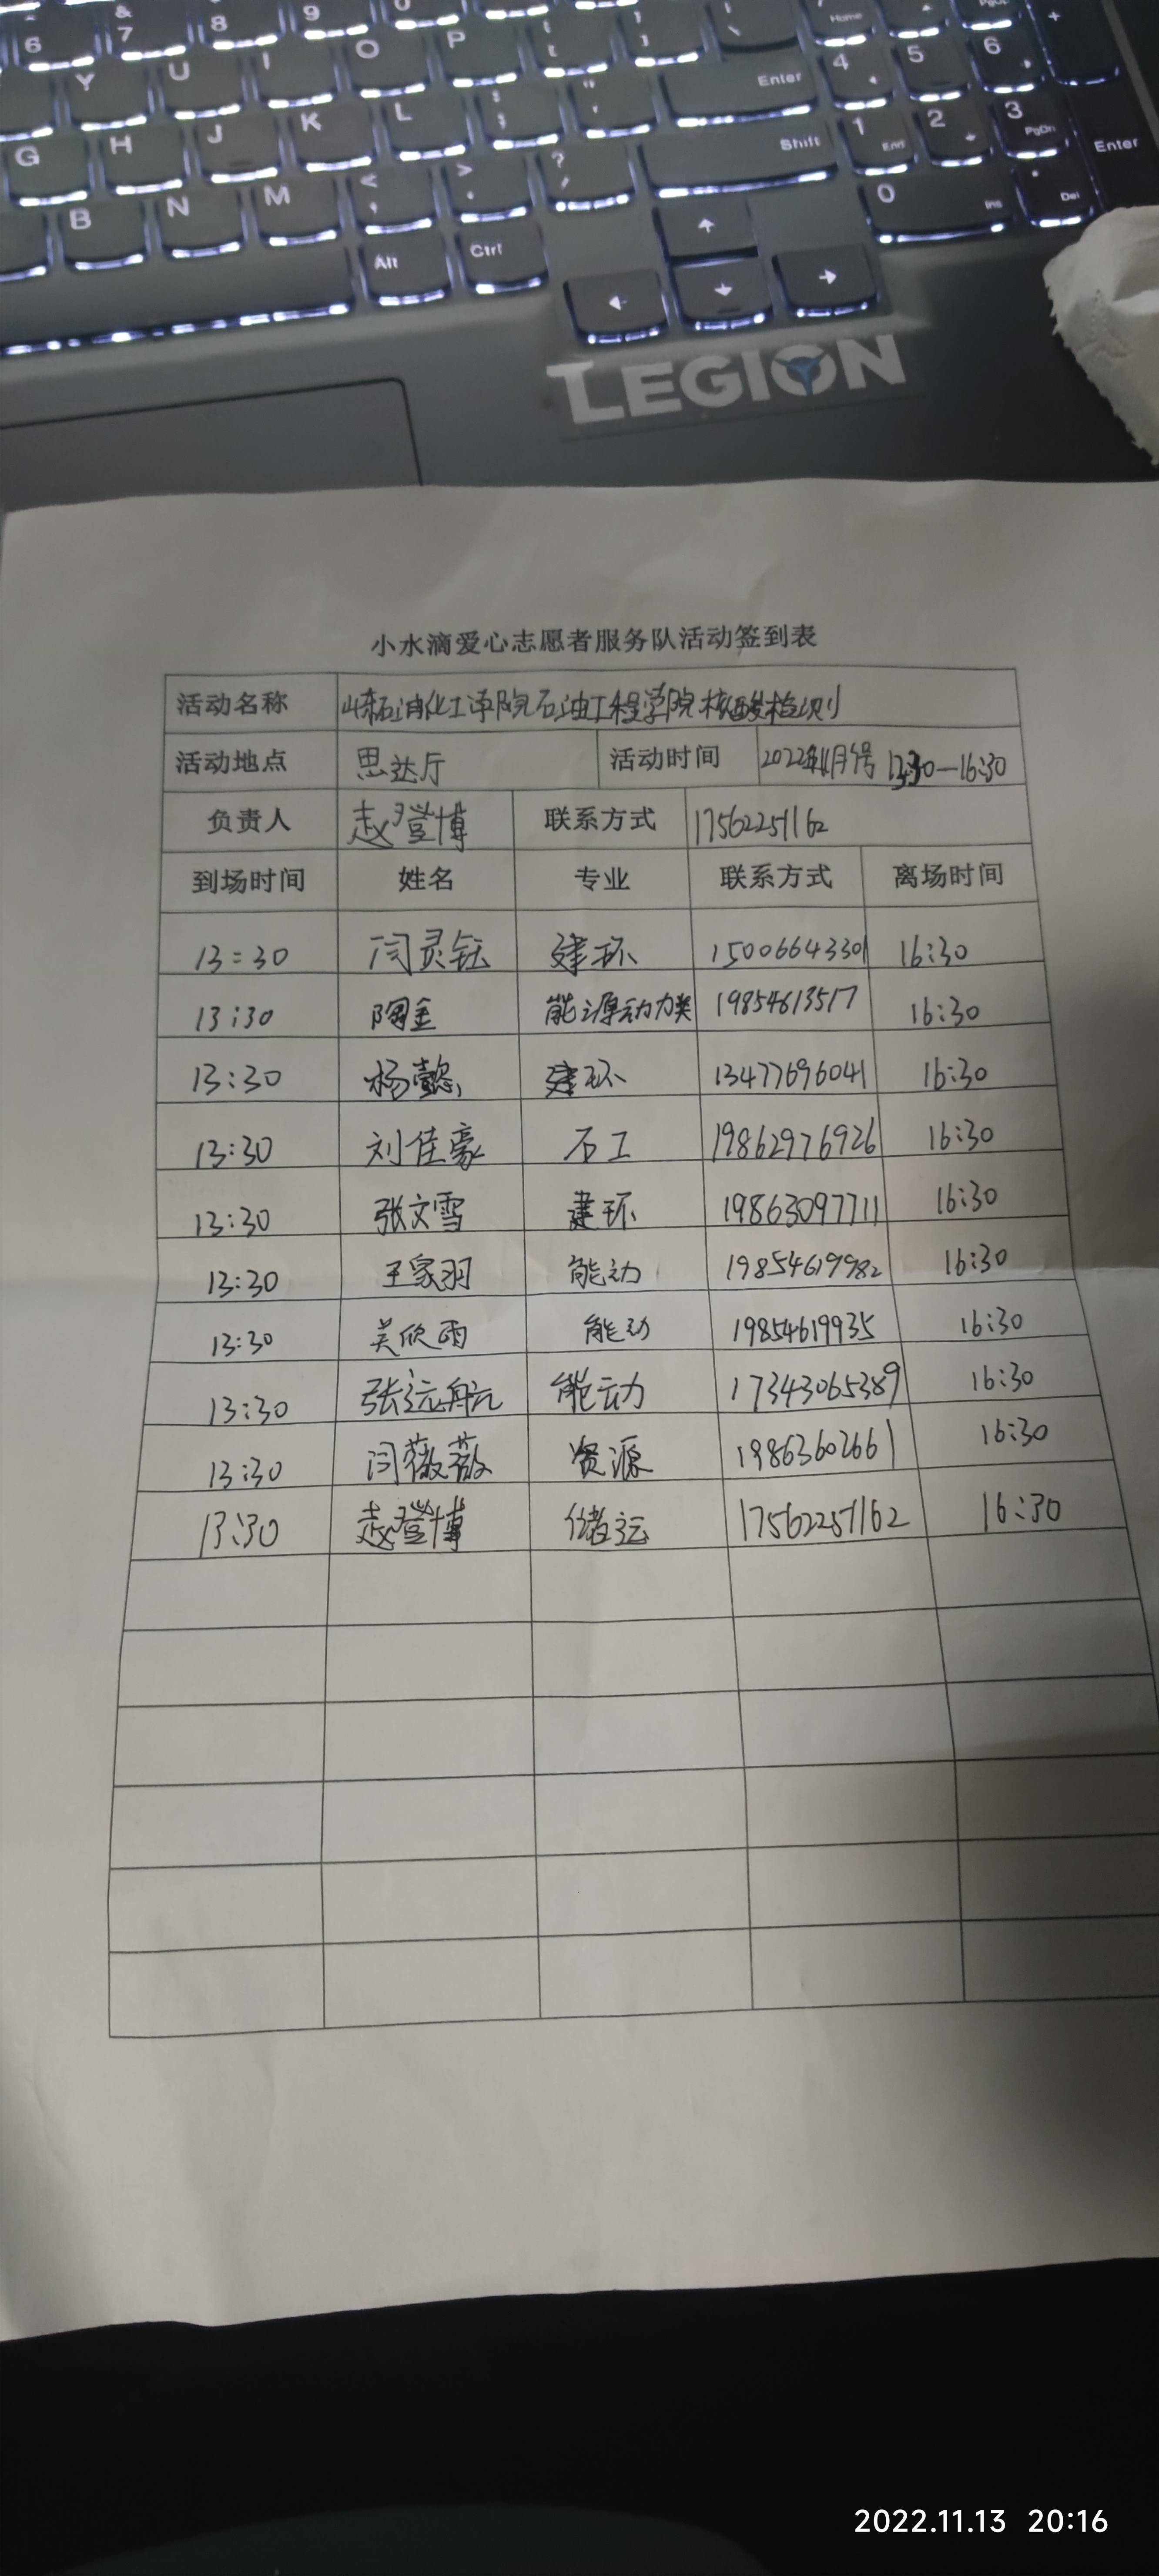 6 & 7 8 9 0
Y U I O P { [ } ] | \ Enter Home PgUp +
G H J K L : ; " ' 4 5 6
B N M < , > . ? / Shift 1 End 2 3 PgDn Enter
Alt Ctrl 0 Ins . Del
LEGION
小水滴爱心志愿者服务队活动签到表
活动名称 山东石油化工学院石油工程学院核酸检测
活动地点 思达厅 活动时间 2022年11月 号 13:30—16:30
负责人 赵登博 联系方式 17562251162
到场时间 姓名 专业 联系方式 离场时间
13:30 闫灵钰 建环 15006643301 16:30
13:30 陶金 能源动力类 19854613517 16:30
13:30 杨懿 建环 13477696041 16:30
13:30 刘佳豪 石工 19862976926 16:30
13:30 张文雪 建环 19863097711 16:30
13:30 王家羽 能动 19854619982 16:30
13:30 吴欣雨 能动 19854619935 16:30
13:30 张远航 能动 17343065389 16:30
13:30 闫薇薇 资源 19863602661 16:30
13:30 赵登博 储运 17562251162 16:30
2022.11.13 20:16